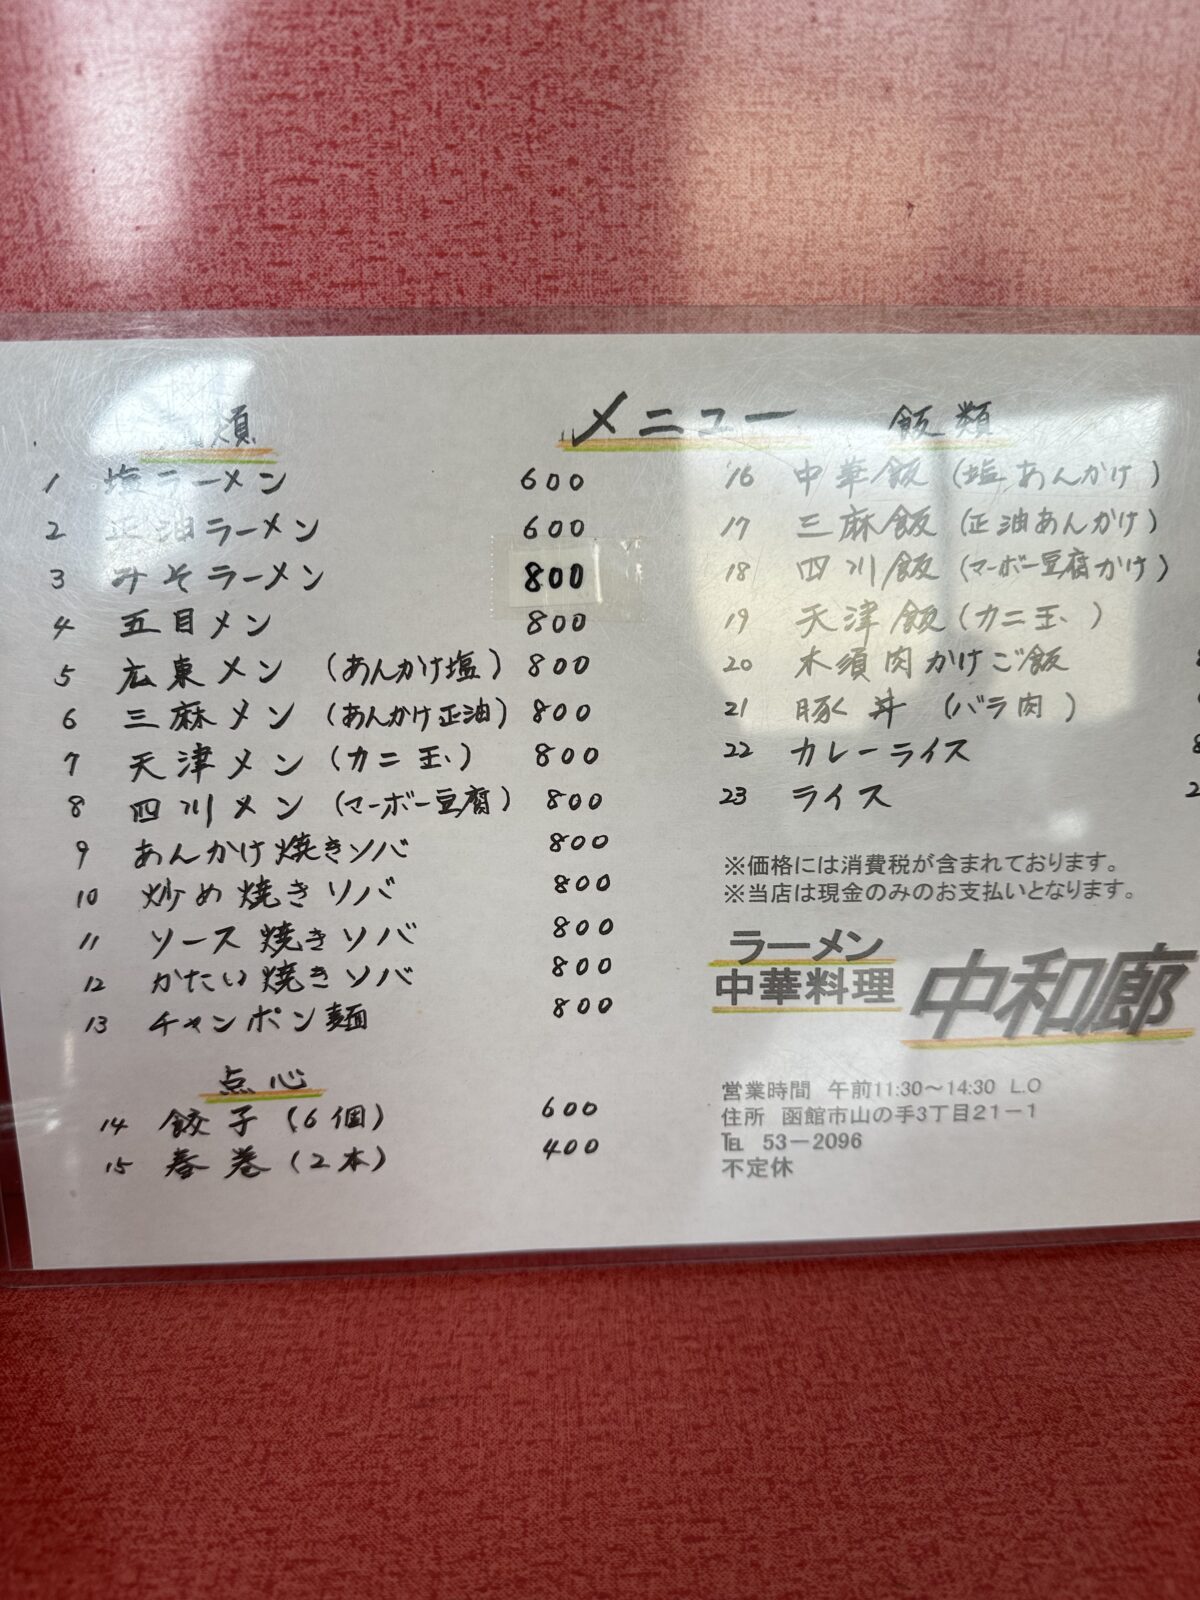 メニュー
類
1 塩ラーメン 600
2 正油ラーメン 600
3 みそラーメン 800
4 五目メン 800
5 広東メン (あんかけ塩) 800
6 三麻メン (あんかけ正油) 800
7 天津メン (カニ玉) 800
8 四川メン (マーボー豆腐) 800
9 あんかけ焼きソバ 800
10 炒め焼きソバ 800
11 ソース焼きソバ 800
12 かたい焼きソバ 800
13 チャンポン麺 800
点心
14 餃子 (6個) 600
15 春巻 (2本) 400
飯類
16 中華飯 (塩あんかけ)
17 三麻飯 (正油あんかけ)
18 四川飯 (マーボー豆腐かけ)
19 天津飯 (カニ玉)
20 木須肉かけご飯
21 豚丼 (バラ肉)
22 カレーライス
23 ライス
※価格には消費税が含まれております。
※当店は現金のみのお支払いとなります。
ラーメン
中華料理 中和廊
営業時間 午前11:30～14:30 L.O
住所 函館市山の手3丁目21－1
℡ 53－2096
不定休